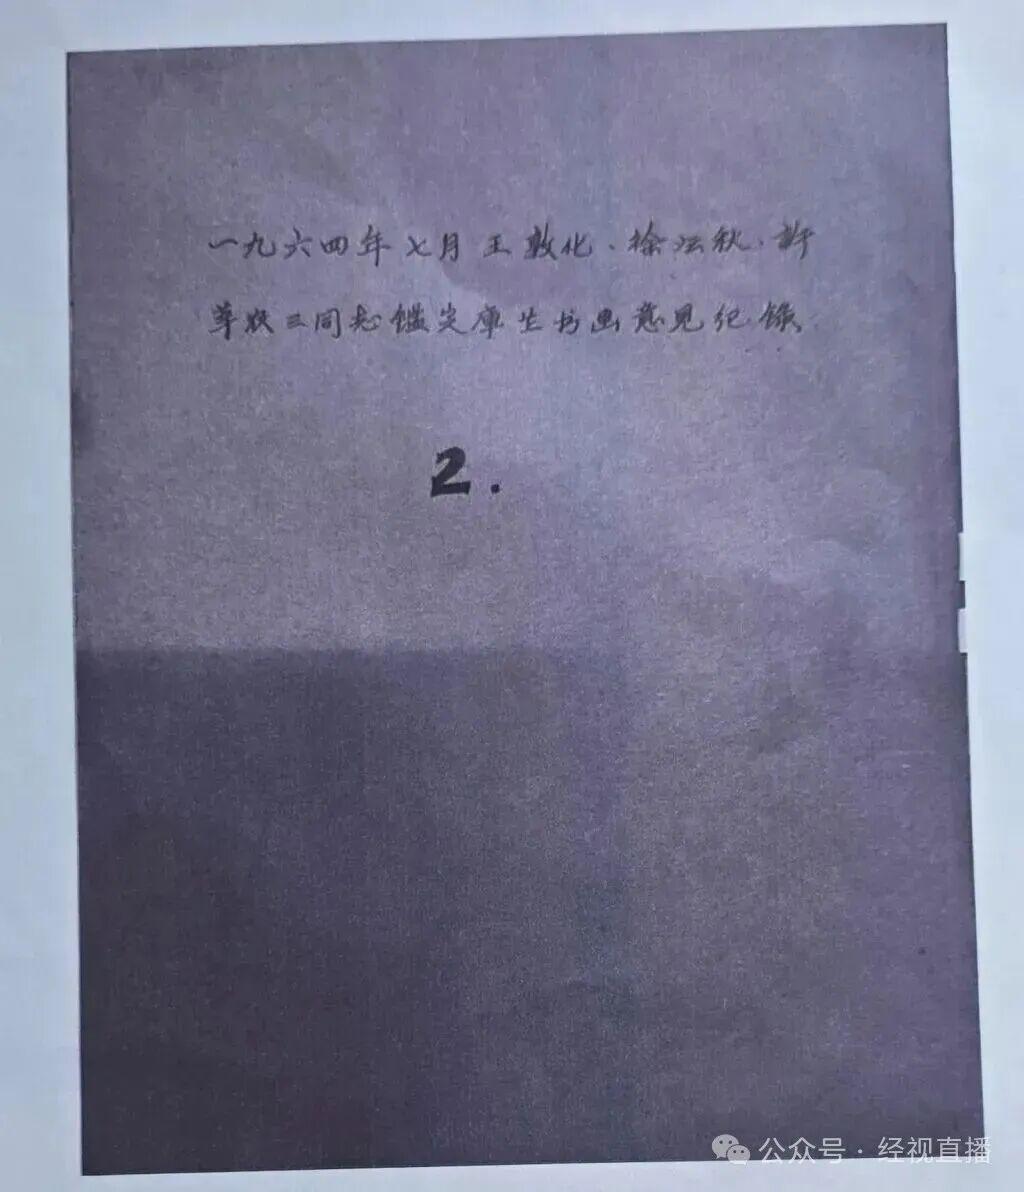 一九六四年七月王敦化、徐沄秋、许
莘农三同志鑑定庫书画意见纪錄
2.
公众号 · 经视直播